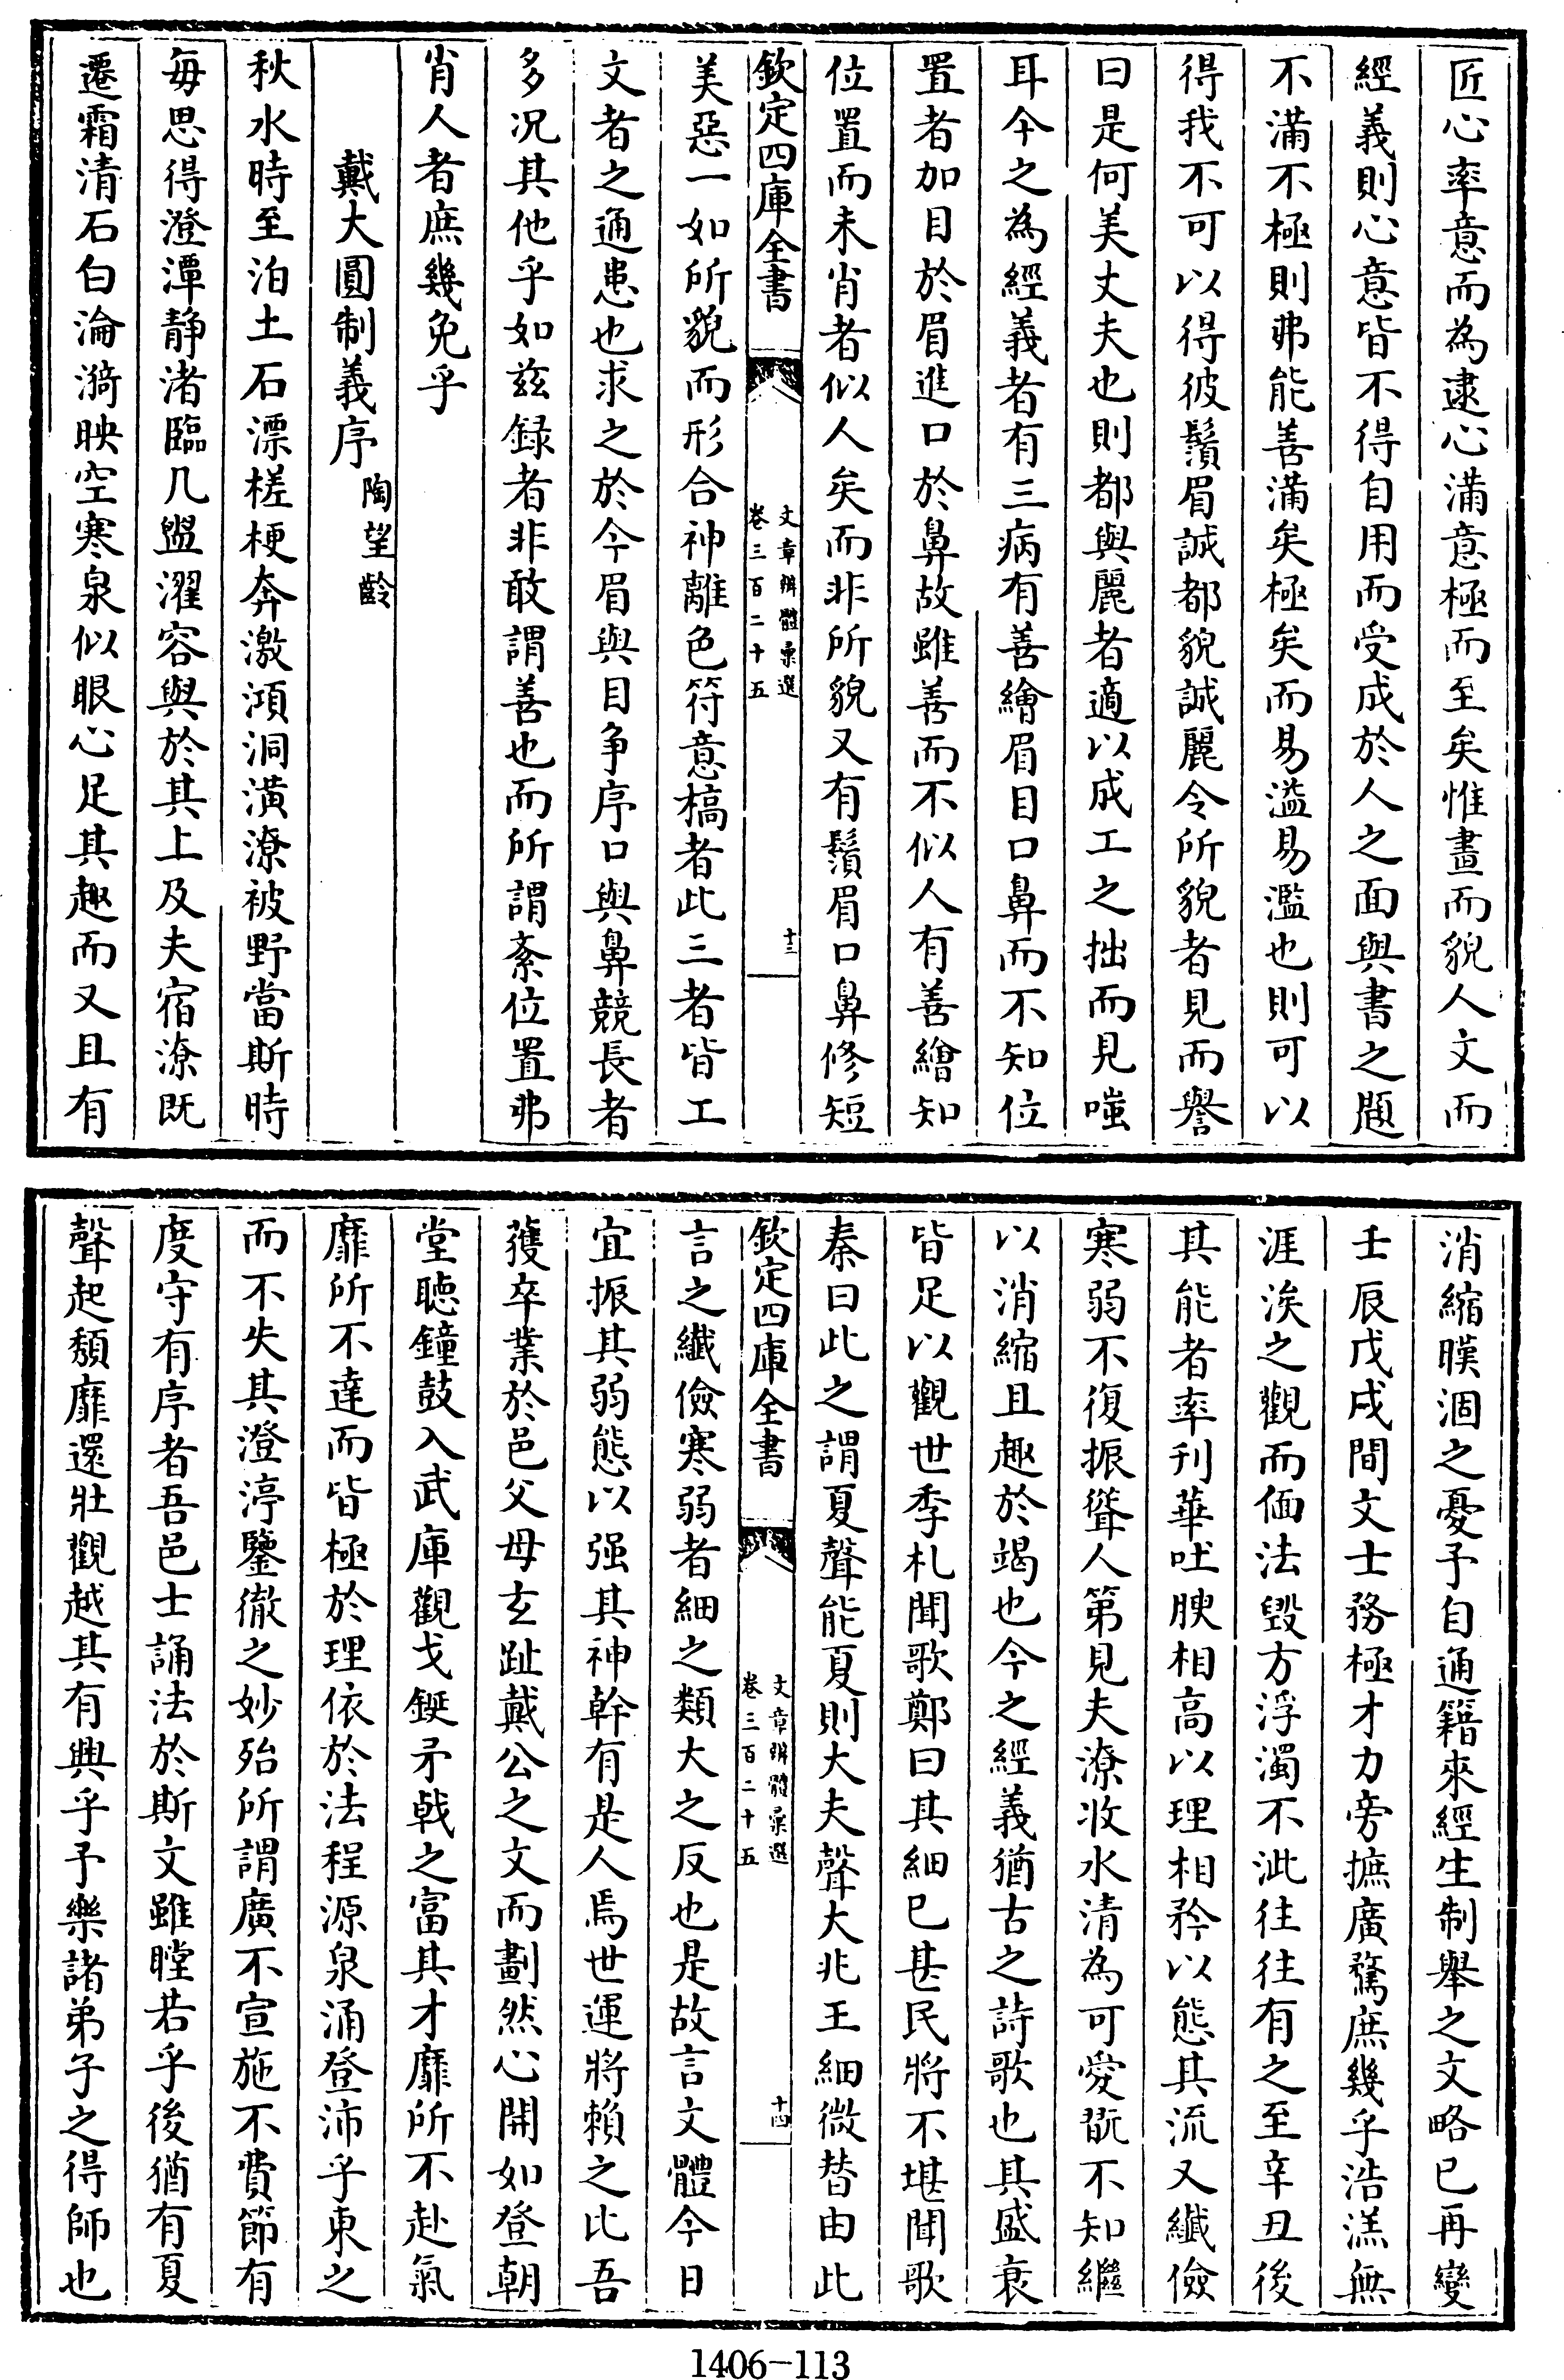 匠心率意而為逮心滿意極而至矣惟畫而貌人文而
經義則心意皆不得自用而受成於人之面與書之題
不滿不極則弗能善滿矣極矣而易溢易濫也則可以
得我不可以得彼鬚眉誠都貌誠麗令所貌者見而譽
曰是何美丈夫也則都與麗者適以成工之拙而見嗤
耳今之為經義者有三病有善繪眉目口鼻而不知位
置者加目於眉進口於鼻故雖善而不似人有善繪知
位置而未肖者似人矣而非所貌又有鬚眉口鼻修短
欽定四庫全書
文章辨體彙選
卷三百二十五
十三
美惡一如所貌而形合神離色符意槁者此三者皆工
文者之通患也求之於今眉與目争序口與鼻競長者
多况其他乎如兹録者非敢謂善也而所謂紊位置弗
肖人者庶幾免乎
戴大圓制義序
陶望齡
秋水時至泊土石漂槎梗奔激澒洞潢潦被野當斯時
每思得澄潭静渚臨几盥濯容與於其上及夫宿潦既
遷霜清石白淪漪映空寒泉似眼心足其趣而又且有
消縮暵涸之憂予自通籍來經生制舉之文略已再變
壬辰戊戌間文士務極才力旁摭廣騖庶幾乎浩漾無
涯涘之觀而偭法毁方浮濁不泚往往有之至辛丑後
其能者率刋華吐腴相高以理相矜以態其流又纖儉
寒弱不復振聳人第見夫潦收水清為可愛翫不知繼
以消縮且趣於竭也今之經義猶古之詩歌也其盛衰
皆足以觀世季札聞歌鄭曰其細已甚民將不堪聞歌
秦曰此之謂夏聲能夏則大夫聲大兆王細微替由此
欽定四庫全書
文章辨體彙選
卷三百二十五
十四
言之纖儉寒弱者細之類大之反也是故言文體今日
宜振其弱態以强其神幹有是人焉世運將賴之比吾
䕶卒業於邑父母玄趾戴公之文而劃然心開如登朝
堂聽鐘鼓入武庫觀戈鋋矛戟之富其才靡所不赴氣
靡所不達而皆極於理依於法程源泉涌登沛乎東之
而不失其澄渟鑒徹之妙殆所謂廣不宣施不費節有
度守有序者吾邑士誦法於斯文雖瞠若乎後猶有夏
聲起頹靡還壯觀越其有興乎予樂諸弟子之得師也
1406-113